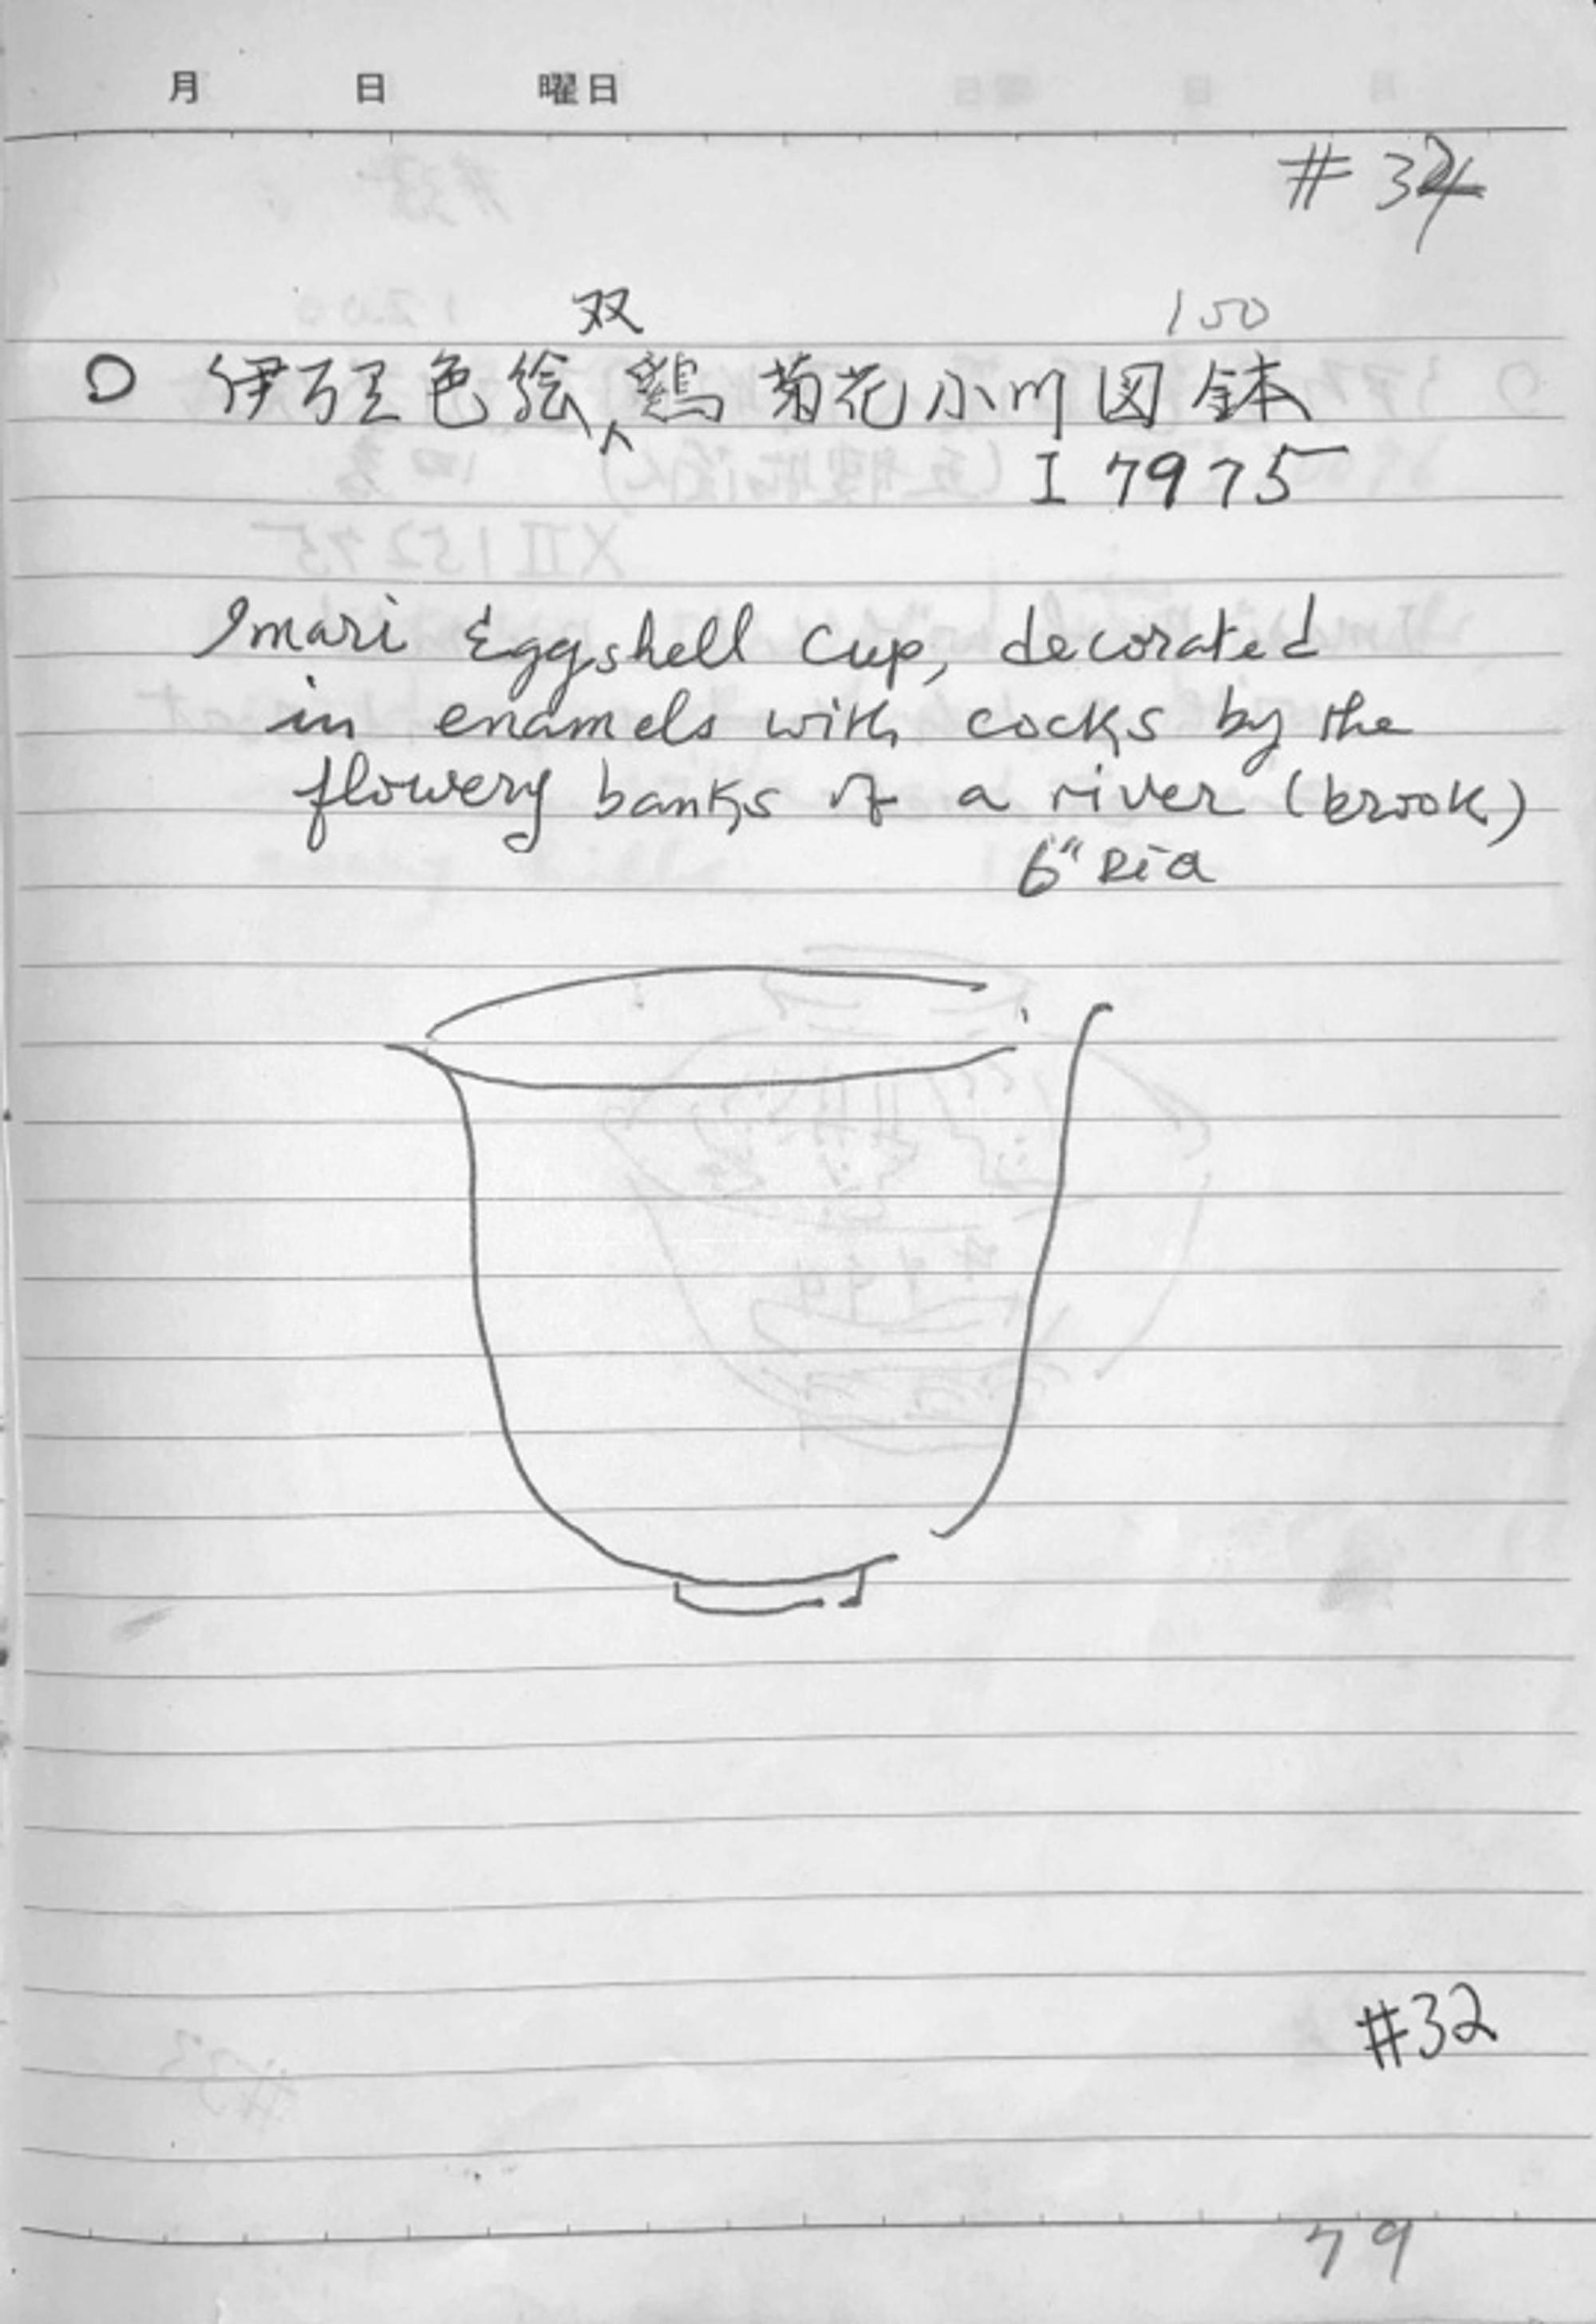 月 日 曜日
#34
双
150
伊万里色絵鷄菊花小川図鉢
I 7975
Imari Eggshell Cup, decorated
in enamels with cocks by the
flowery banks of a river (brook)
6" Dia
#32
79